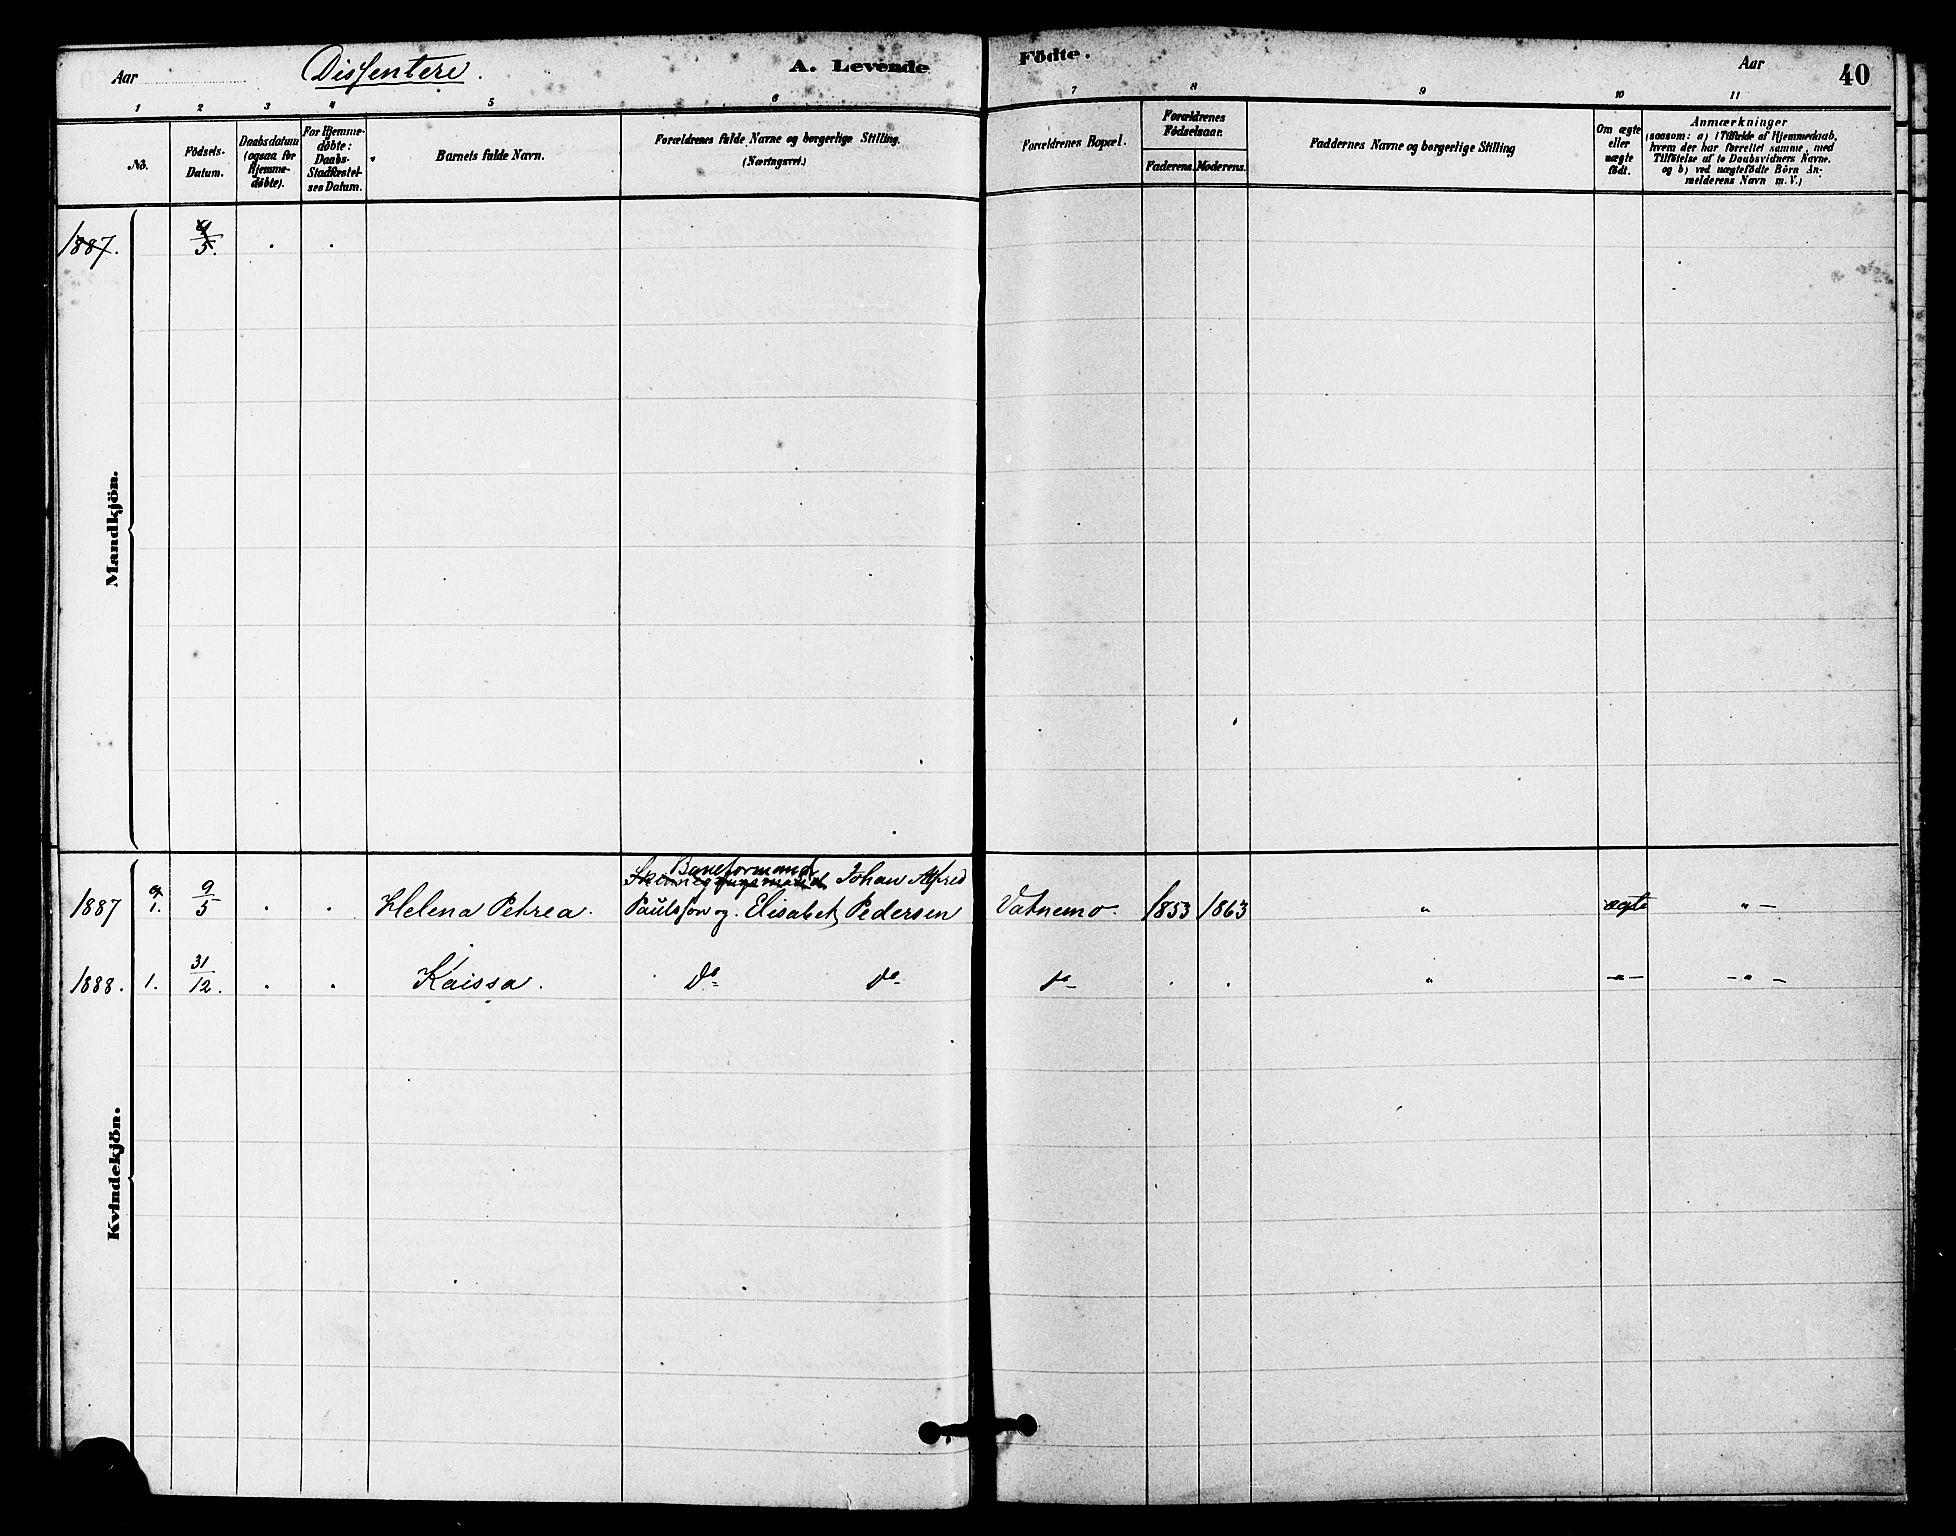 Aar Dissentere. A. Levende Födte. Aar 40
1 2 3 4 5 6 7 8 9 10 11
No.
Födsels-
Datum.
Daabsdatum
(ogsaa for
Hjemme-
döbte).
For Hjemme-
döbte:
Daabs-
Stadfæstel-
ses Datum.
Barnets fulde Navn.
Forældrenes fulde Navne og borgerlige Stilling.
(Næringsvei.)
Forældrenes Bopæl.
Forældrenes
Födselsaar.
Faderens. Moderens.
Faddernes Navne og borgerlige Stilling
Om ægte
eller
uægte
födt.
Anmærkninger
(saasom: a) i Tilfælde af Hjemmedaab,
hvem der har forrettet samme, med
Tilföielse af to Daabsvidners Navne.
og b) ved uægtefödte Börn An-
melderens Navn m. V.)
1887. 9/5.
Mandkjön.
Baneformand
Johan Alfred
1887 1. 9/5 Helena Petrea. Paulsson og Elisabet Pedersen Vatnemo. 1853 1863 " ægte " -
1888. 1. 31/12. Kaissa. do do do " -"- -"-
Kvindekjön.